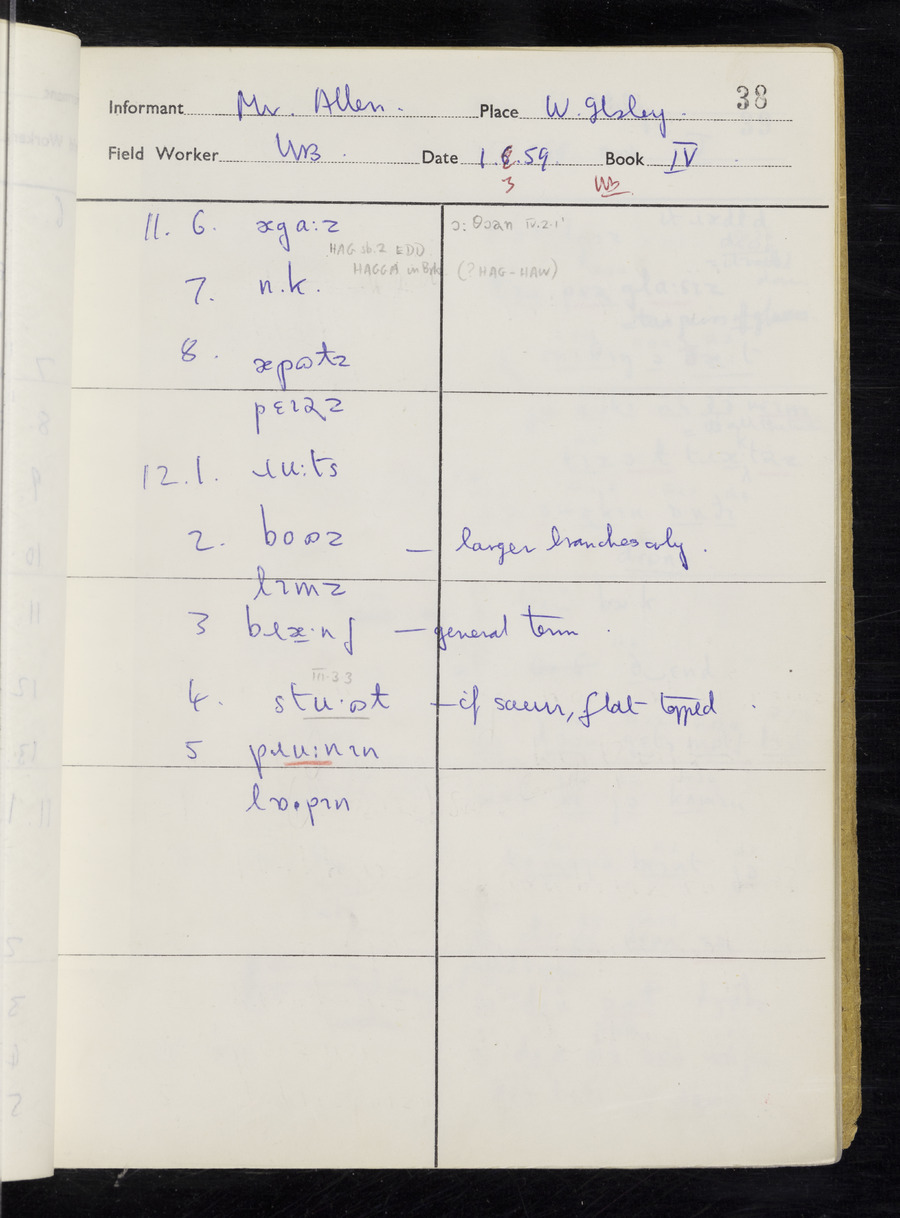 38
Informant Mr. Allen. Place W. Ilsley.
Field Worker WB. Date 1.8.59. Book IV.
3 WB
11. 6. ægaːz ɔ: θɔan IV.2.1
HAG sb.2 EDD
HAGGA in Brk (? HAG-HAW)
7. n.k.
8. æpɷtz
pɛɪɹz
12. 1. ɹuːts
2. boɷz — larger branches only.
lɪmz
3 bɹæ·nʃ — general term.
III.3.3
4. stu·ɷt — if sawn, flat topped.
5 pɹuːnɪn